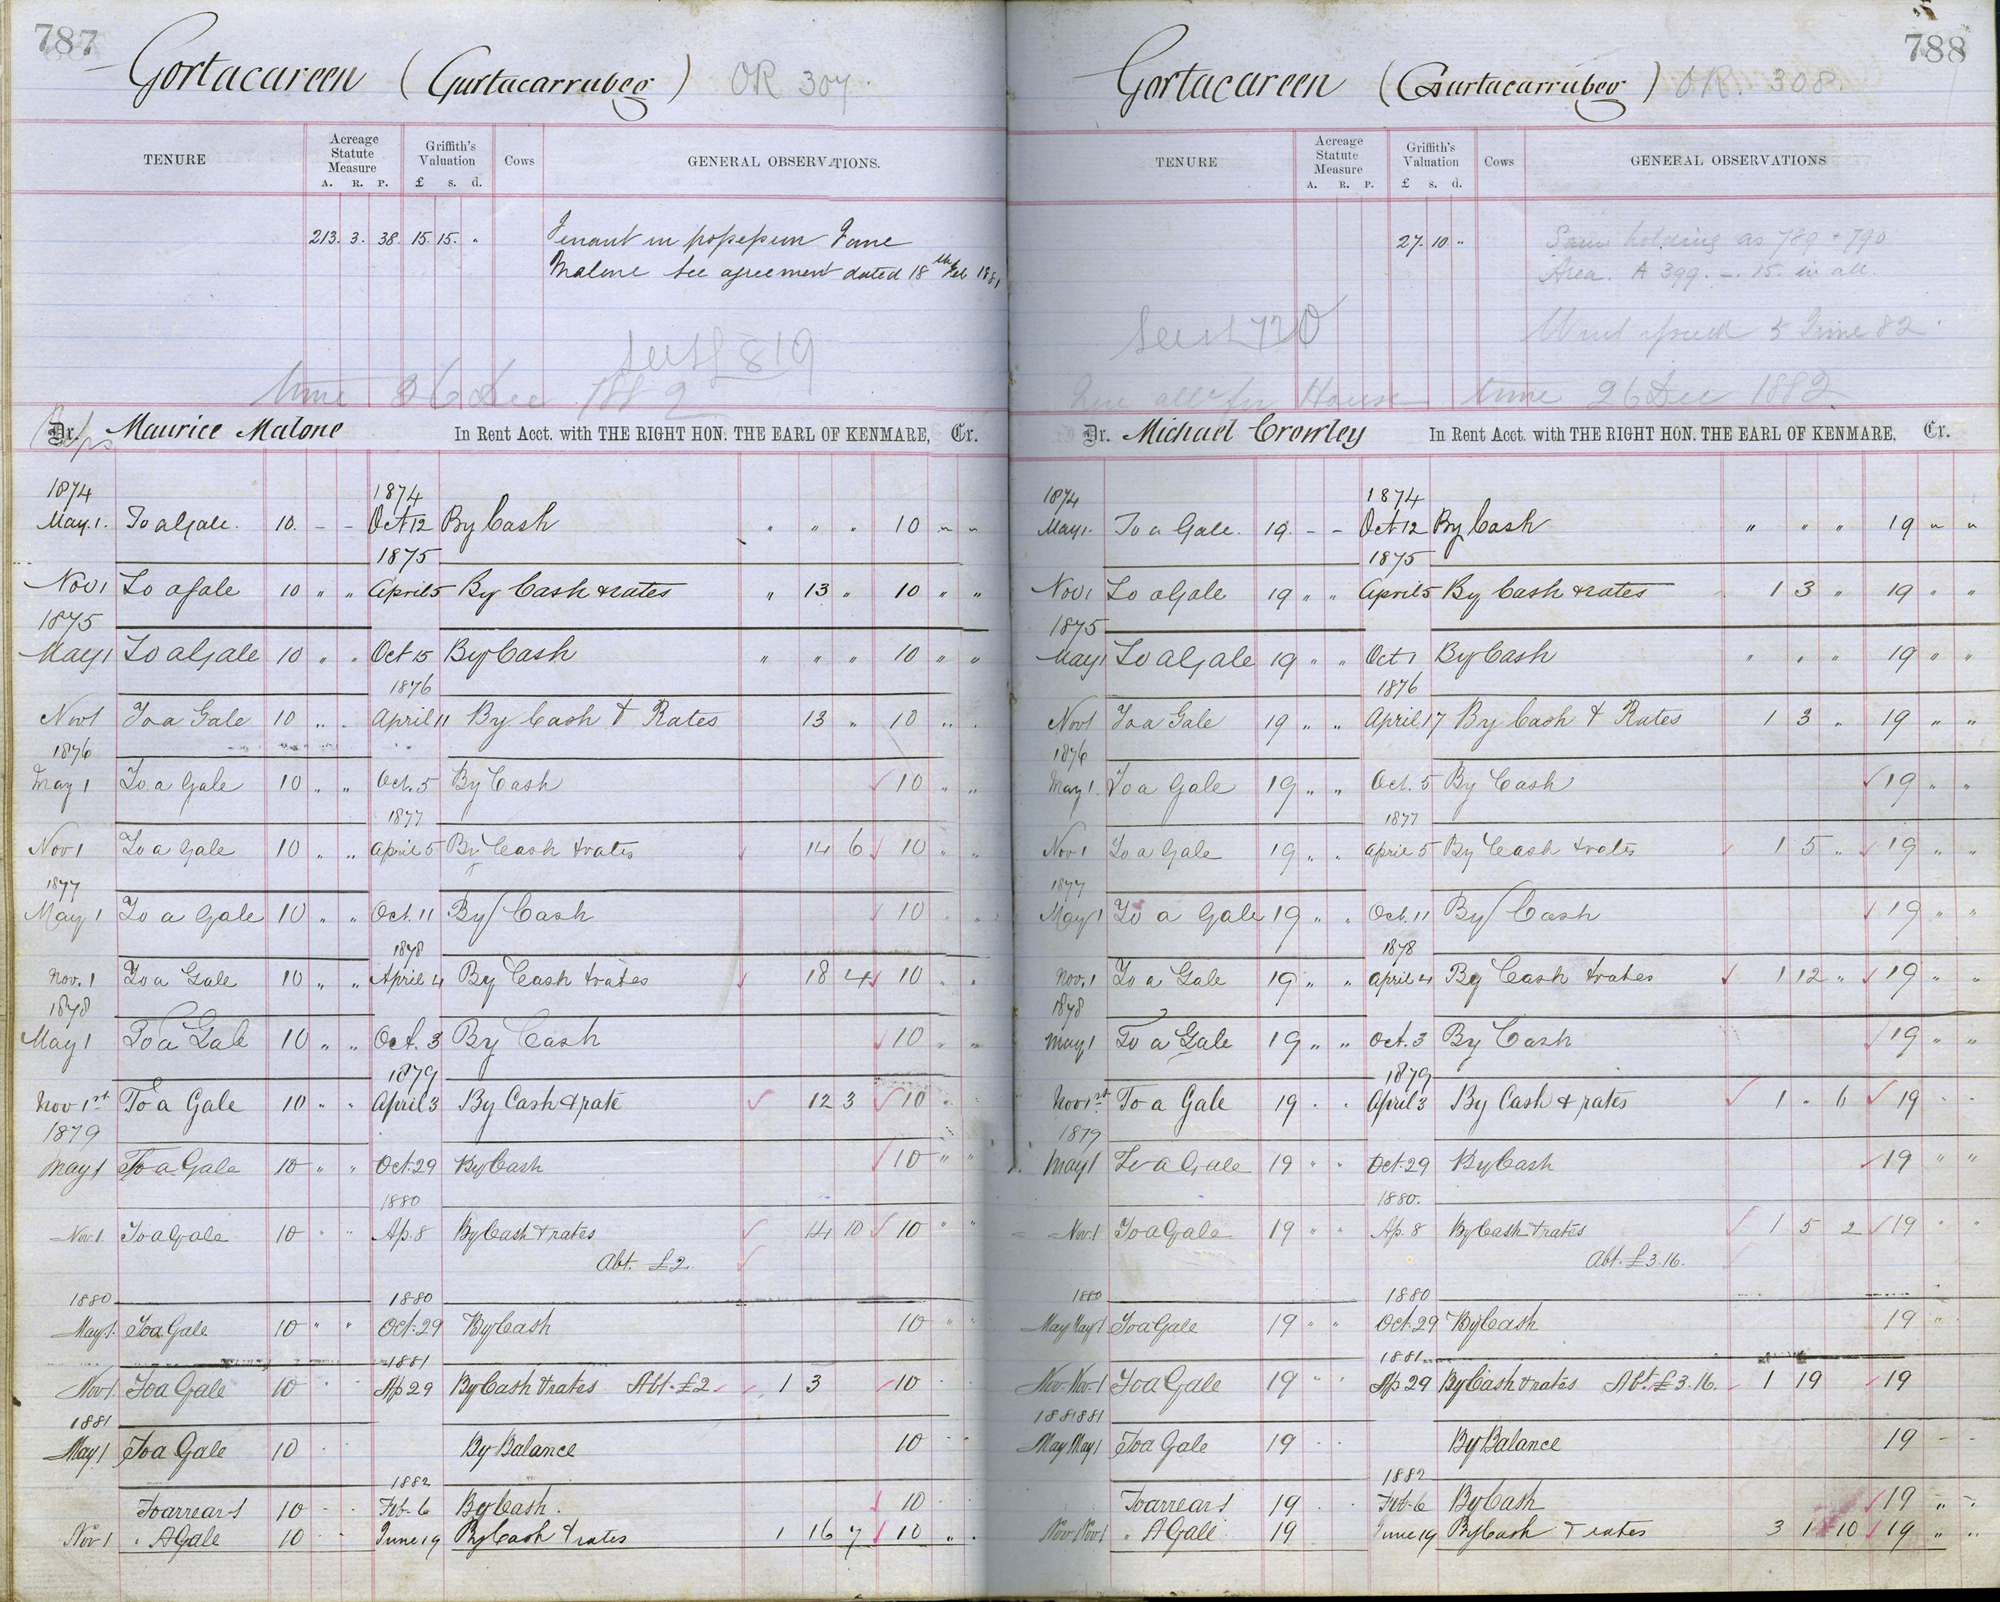 787
Gortacareen (Gurtacarrubeg) OR 307.
TENURE Acreage Statute Measure A. R. P. Griffith's Valuation £ s. d. Cows GENERAL OBSERVATIONS.
213. 3. 38. 15. 15. " Tenant in possession Jane
Malone See agreement dated 18th Feb 1881
819
26 Dec 1882
Dr. Maurice Malone In Rent Acct. with THE RIGHT HON. THE EARL OF KENMARE, Cr.
1874 1874
May. 1. To a Gale. 10. - - Oct 12 By Cash " " " 10 " "
1875
Nov 1 To a Gale 10 " " April 5 By Cash & rates " 13 " 10 " "
1875
May 1 To a Gale 10 " " Oct 15 By Cash " " " 10 " "
1876
Nov 1 To a Gale 10 " " April 11 By Cash & Rates 13 " 10 " "
1876
May 1 To a Gale 10 " " Oct. 5 By Cash 10 " "
1877
Nov 1 To a Gale 10 " " April 5 By Cash & rates 14 6 10 " "
1877
May 1 To a Gale 10 " " Oct. 11 By Cash 10 " "
1878
Nov. 1 To a Gale 10 " " April 4 By Cash & rates 18 4 10 " "
1878
May 1 To a Gale 10 " " Oct. 3 By Cash 10 " "
1879
Nov 1st To a Gale 10 " " April 3 By Cash & rate 12 3 10 " "
1879
May 1 To a Gale 10 " " Oct. 29 By Cash 10 " "
1880
Nov 1 To a Gale 10 " " Ap. 8 By Cash & rates 14 10 10 " "
Abt. £2.
1880 1880
May 1. To a Gale 10 " " Oct. 29 By Cash 10 " "
1881
Nov 1. To a Gale 10 " " Ap 29 By Cash & rates Abt. £2 1 3 10
1881
May 1 To a Gale 10 By Balance 10
1882
To arrears 10 Feb. 6 By Cash. 10
Nov 1 " A Gale 10 June 19 By Cash & rates 1 16 7 10 "
788
Gortacareen (Gurtacarrubeg) OR. 308.
TENURE Acreage Statute Measure A. R. P. Griffith's Valuation £ s. d. Cows GENERAL OBSERVATIONS
27. 10. " Same holding as 789 & 790
Area. A 399. -. 15. in all.
720 5 June 82.
House 26 Dec 1882
Dr. Michael Crowley In Rent Acct. with THE RIGHT HON. THE EARL OF KENMARE, Cr.
1874 1874
May 1. To a Gale. 19. - - Oct 12 By Cash " " " 19 " "
1875
Nov 1 To a Gale 19 " " April 5 By Cash & rates 1 3 " 19 " "
1875
May 1 To a Gale 19 " " Oct 1 By Cash " " " 19 " "
1876
Nov 1 To a Gale 19 " " April 17 By Cash & Rates 1 3 " 19 " "
1876
May 1. To a Gale 19 " " Oct. 5 By Cash 19 " "
1877
Nov 1 To a Gale 19 " " April 5 By Cash & rates 1 5 " 19 " "
1877
May 1 To a Gale 19 " " Oct. 11 By Cash 19 " "
1878
Nov. 1 To a Gale 19 " " April 4 By Cash & rates 1 12 " 19 " "
1878
May 1 To a Gale 19 " " Oct. 3 By Cash 19 " "
1879
Nov 1st To a Gale 19 " " April 3 By Cash & rates 1 " 6 19 " "
1879
May 1 To a Gale 19 " " Oct. 29 By Cash 19 " "
1880.
Nov 1 To a Gale 19 " " Ap. 8 By Cash & rates 1 5 2 19 " "
Abt. £3.16.
1880 1880
May May 1 To a Gale 19 " " Oct. 29 By Cash 19 "
1881
Nov Nov 1 To a Gale 19 " " Ap 29 By Cash & rates Abt. £3.16. 1 19 19
1881 1881
May May 1 To a Gale 19 By Balance 19 - -
1882
To arrears 19 Feb. 6 By Cash 19 " "
Nov Nov 1 " A Gale 19 June 19 By Cash & rates 3 1 10 19 " "